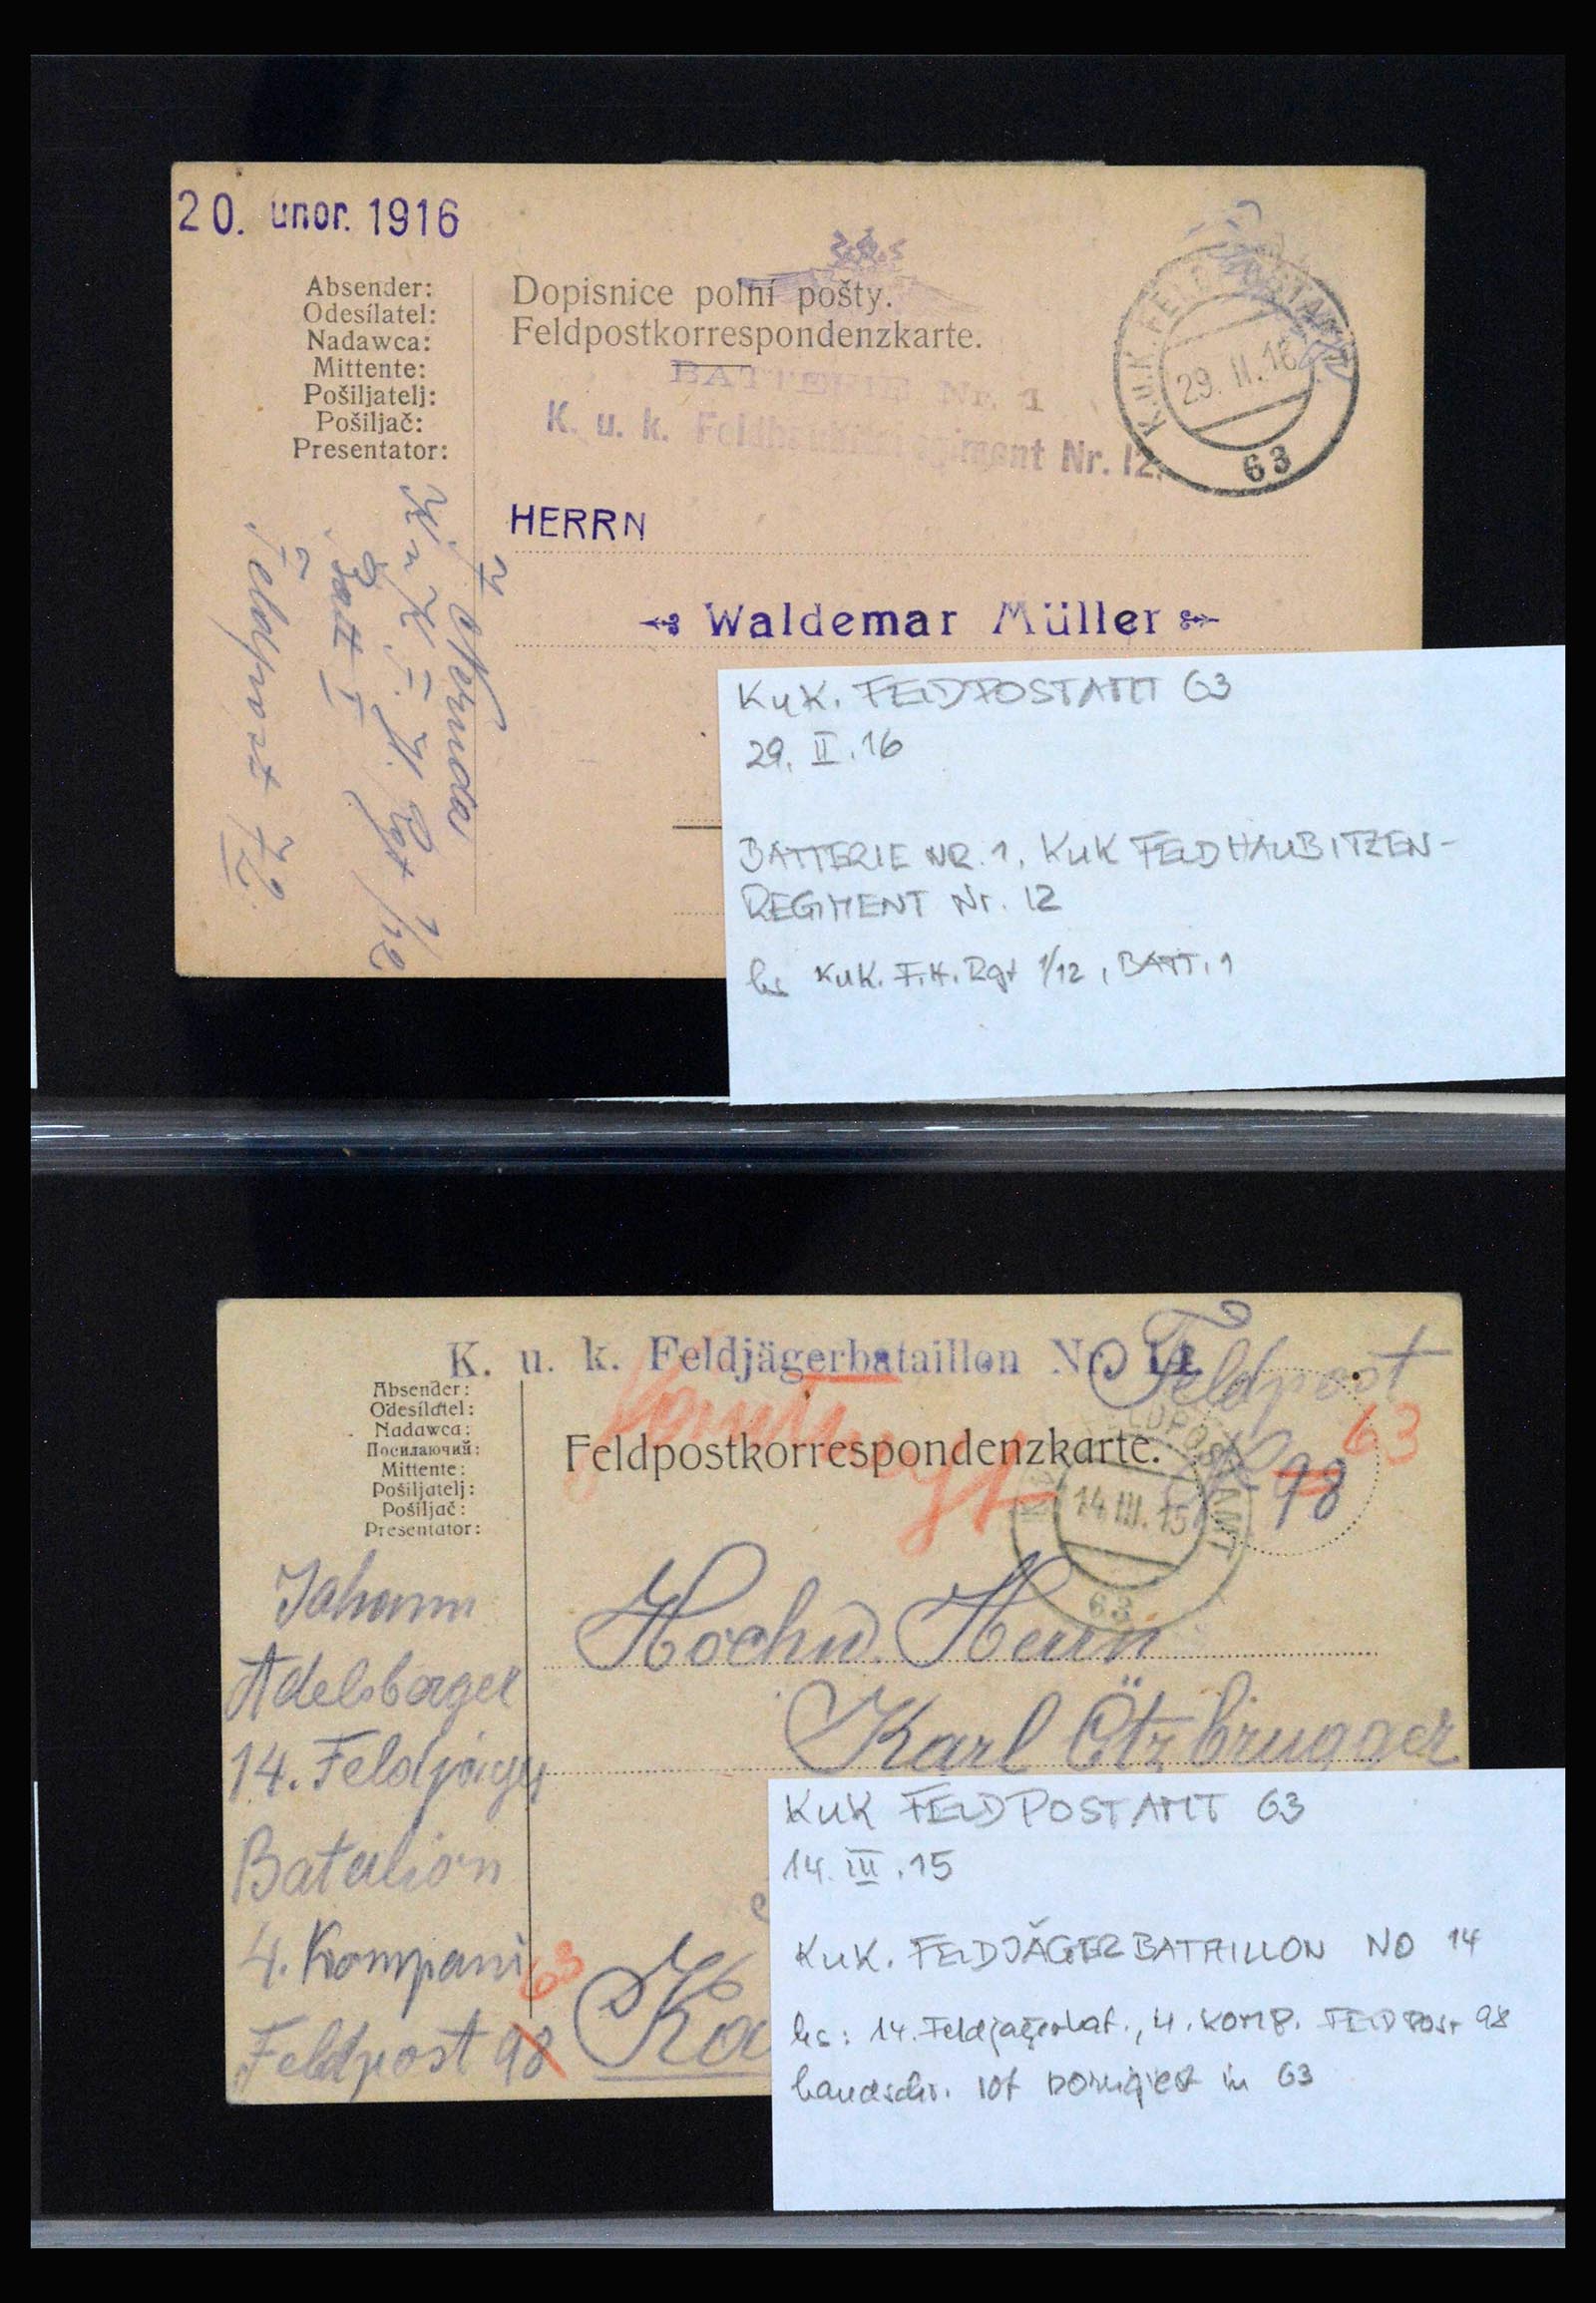 20. unor. 1916
Absender:
Odesílatel:
Nadawca:
Mittente:
Pošiljatelj:
Pošiljač:
Presentator:
Dopisnice polní pošty.
Feldpostkorrespondenzkarte.
BATTERIE Nr. 1
K. u. k. Feldhaubitzregiment Nr. 12.
K.u.K. FELDPOSTAMT
29. II. 16
63
HERRN
Waldemar Müller
K u K. F. H. Rgt 1/12
Batt I
Feldpost
KuK. FELDPOSTAMT 63
29. II. 16
BATTERIE NR. 1, KuK FELDHAUBITZEN-
REGIMENT Nr. 12
hs KuK. F.H. Rgt 1/12, BATT. 1
K. u. k. Feldjägerbataillon Nr. 14
Absender:
Odesílatel:
Nadawca:
Посилаючий:
Mittente:
Pošiljatelj:
Pošiljač:
Presentator:
Feldpost
63
98
Feldpostkorrespondenzkarte.
FELDPOSTAMT
14 III. 15
63
Hochw. Herrn
Karl Ötzbrugger
Johann
Adelsberger
14. Feldjäger
Batalion
4. Kompani
63
Feldpost 98
Ka
KuK FELDPOSTAMT 63
14. III. 15
KuK. FELDJÄGERBATAILLON NO 14
hs: 14. Feldjägerbat., 4. KOMP. FELDPOST 98
handschr. rot korrigiert in 63